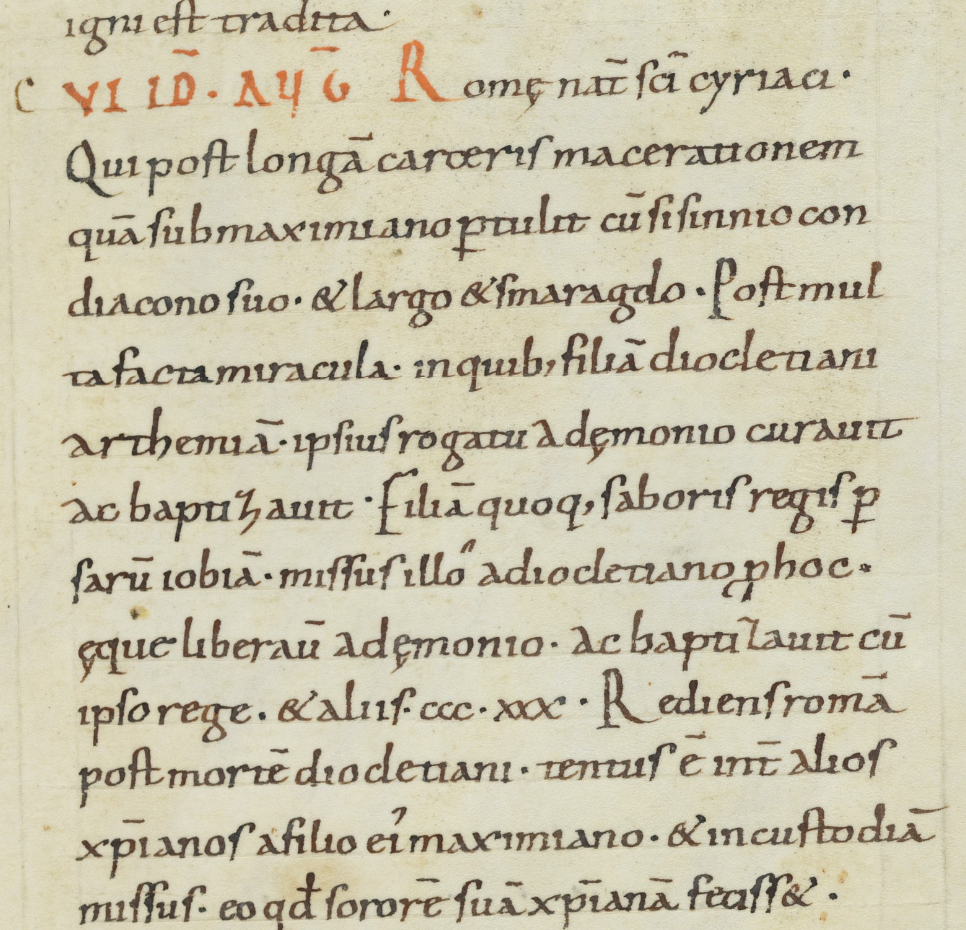 igni est tradita·
C VI ID̄· AUḠ Romę nat̄ sc̄i cyriaci·
Qui post longā carceris macerationem
quā sub maximiano ꝑtulit cū sisinnio con
diacono suo· & largo & smaragdo· Post mul
ta facta miracula· in quib; filiā diocletiani
arthemiā· ipsius rogatu a dęmonio curauit
ac baptizauit· Filiā quoq; saboris regis ꝑ
sarū iobiā· missus illo a diocletiano ꝓ hoc·
ęque liberau̅ a dęmonio· ac baptizauit cū
ipso rege· & aliis· ccc· xxx· Rediens romā
post mortē diocletiani· tentus ē int̄ alios
xp̄ianos a filio ei᾽ maximiano· & in custodiā
missus· eo qd̄ sororē suā xp̄ianā feciss&·